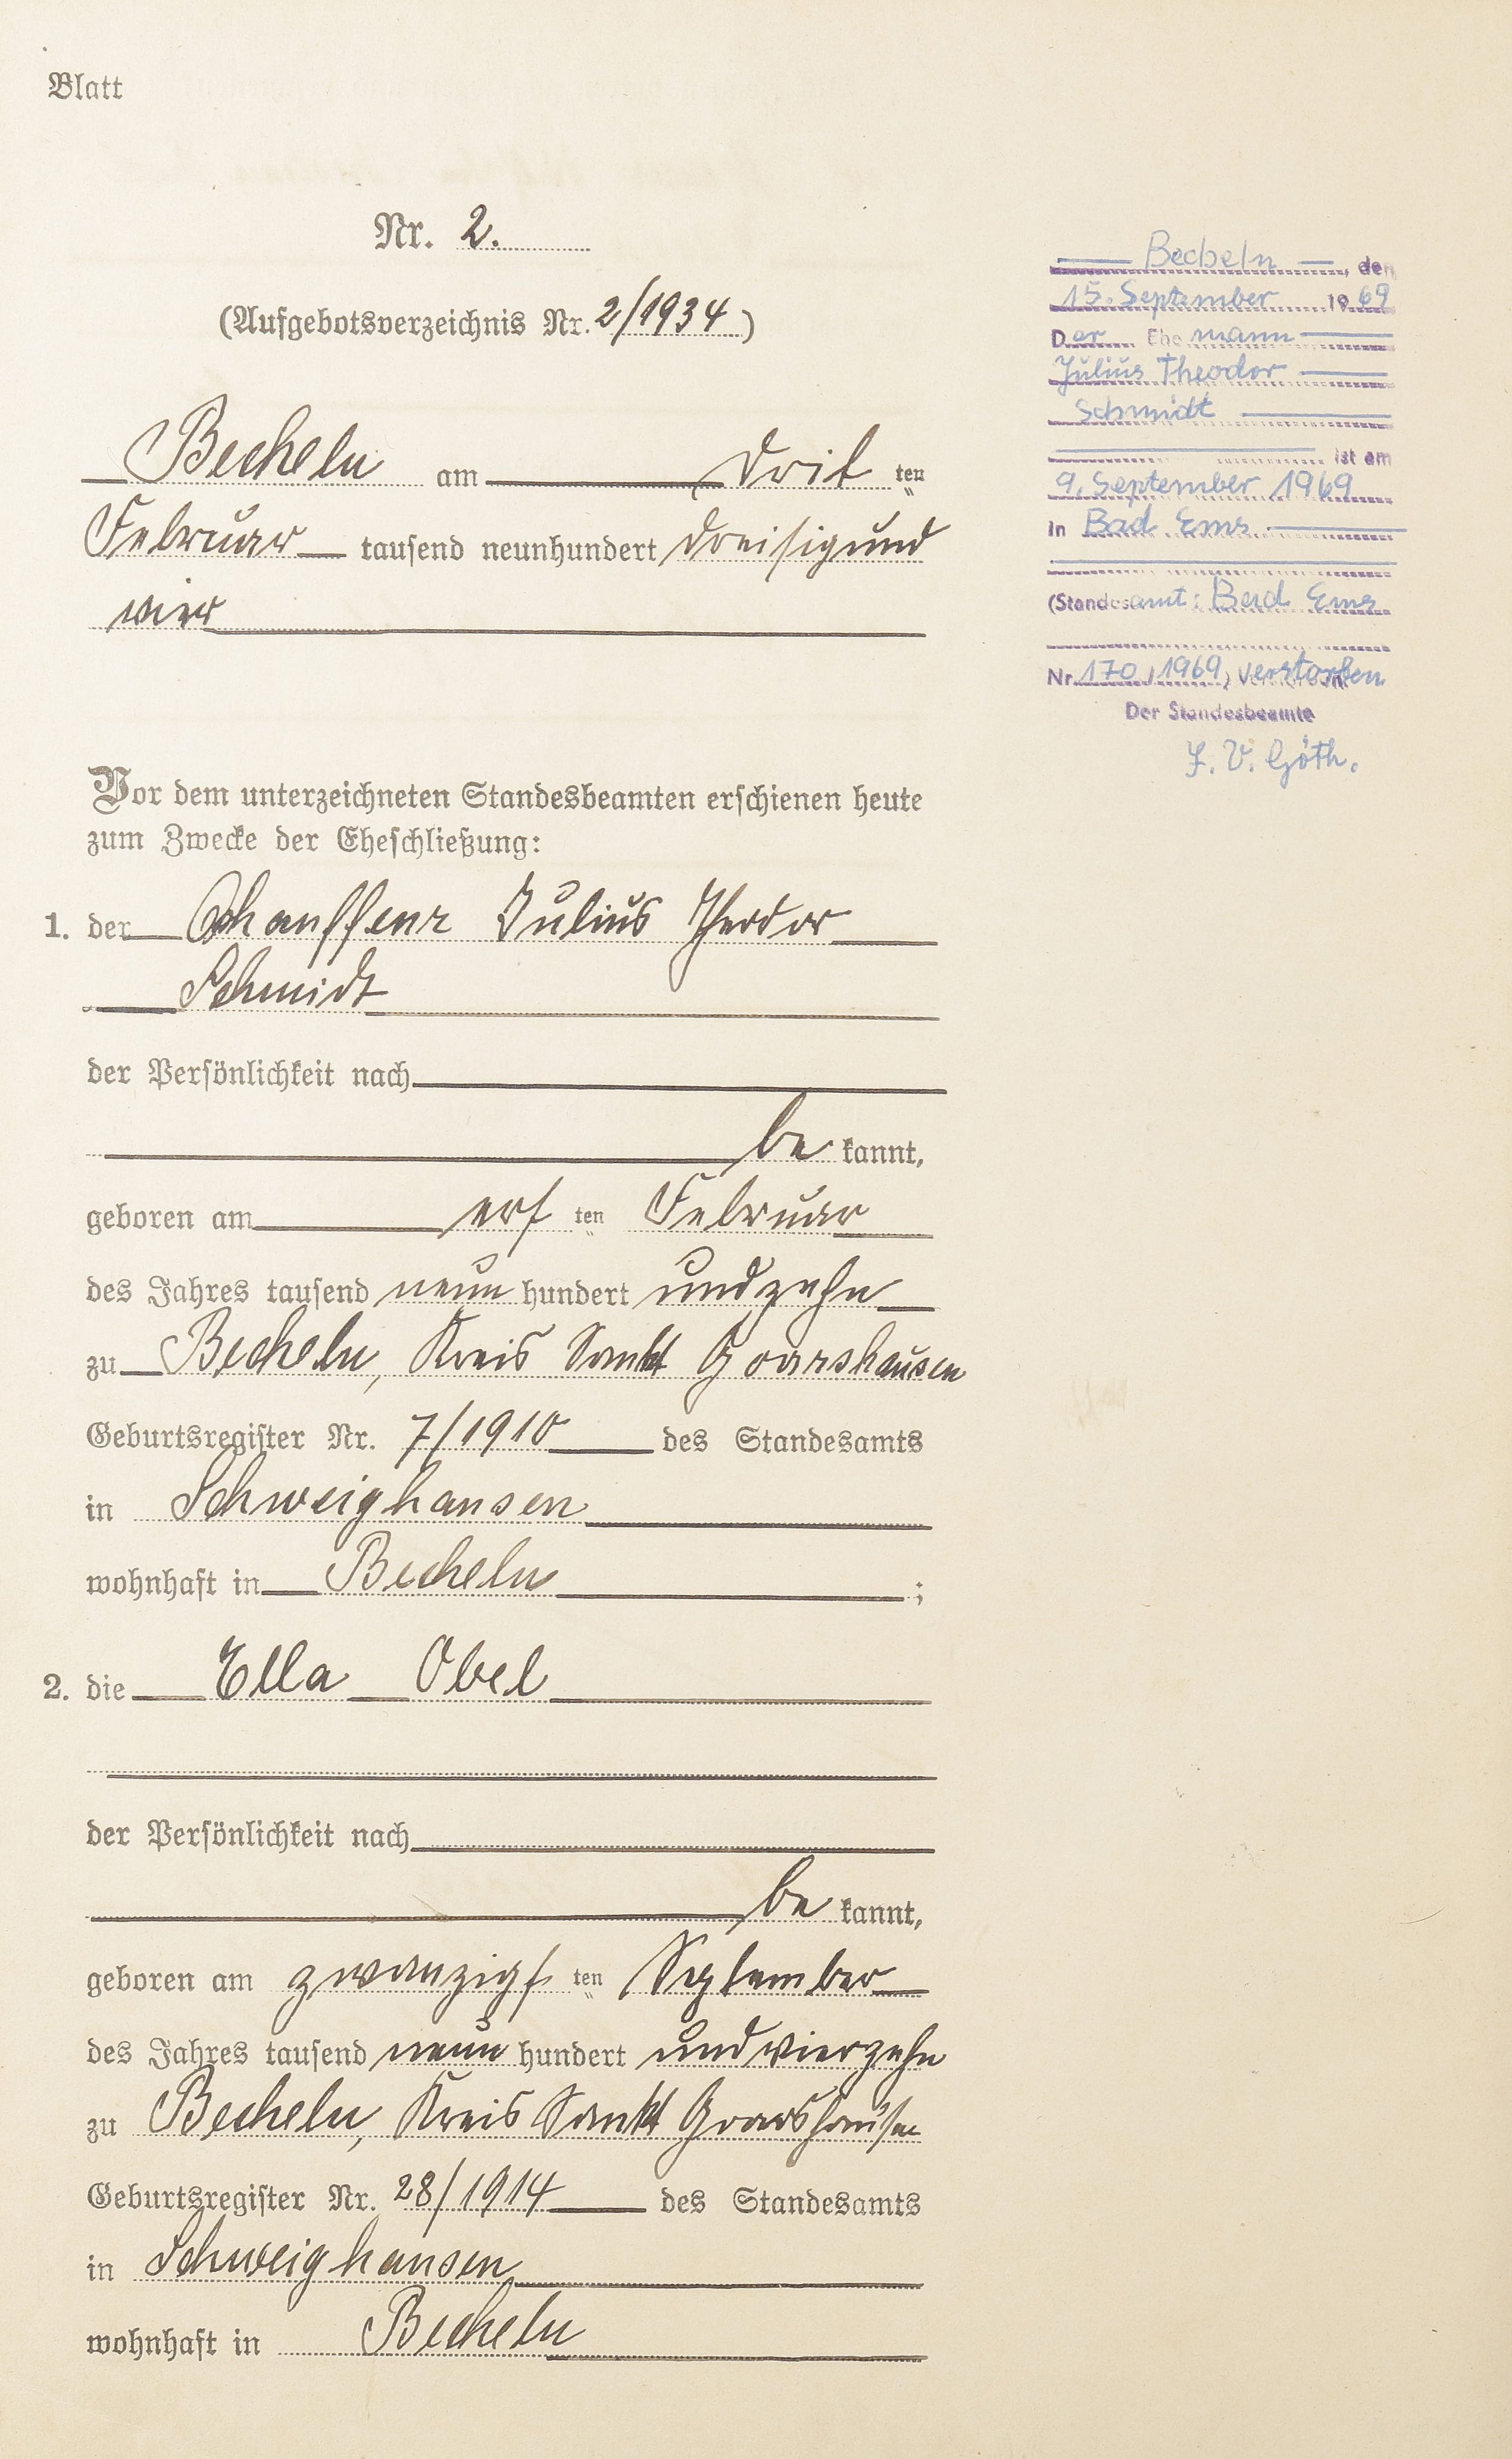 Blatt
Nr. 2.
(Aufgebotsverzeichnis Nr. 2/1934)
Becheln am drit ten
Februar tausend neunhundert dreisigund
vier
Vor dem unterzeichneten Standesbeamten erschienen heute
zum Zwecke der Eheschließung:
1. der Chauffeur Julius Theodor
Schmidt
der Persönlichkeit nach
be kannt,
geboren am ers ten Februar
des Jahres tausend neun hundert undzehn
zu Becheln, Kreis Sankt Goarshausen
Geburtsregister Nr. 7/1910 des Standesamts
in Schweighausen
wohnhaft in Becheln ;
2. die Ella Obel
der Persönlichkeit nach
be kannt,
geboren am zwanzigs ten September
des Jahres tausend neun hundert undvierzehn
zu Becheln, Kreis Sankt Goarshausen
Geburtsregister Nr. 28/1914 des Standesamts
in Schweighausen
wohnhaft in Becheln
Becheln, den
15. September 1969
Der Ehemann
Julius Theodor
Schmidt
ist am
9. September 1969
in Bad Ems
(Standesamt: Bad Ems
Nr. 170/1969) verstorben
Der Standesbeamte
I. V. Göth.